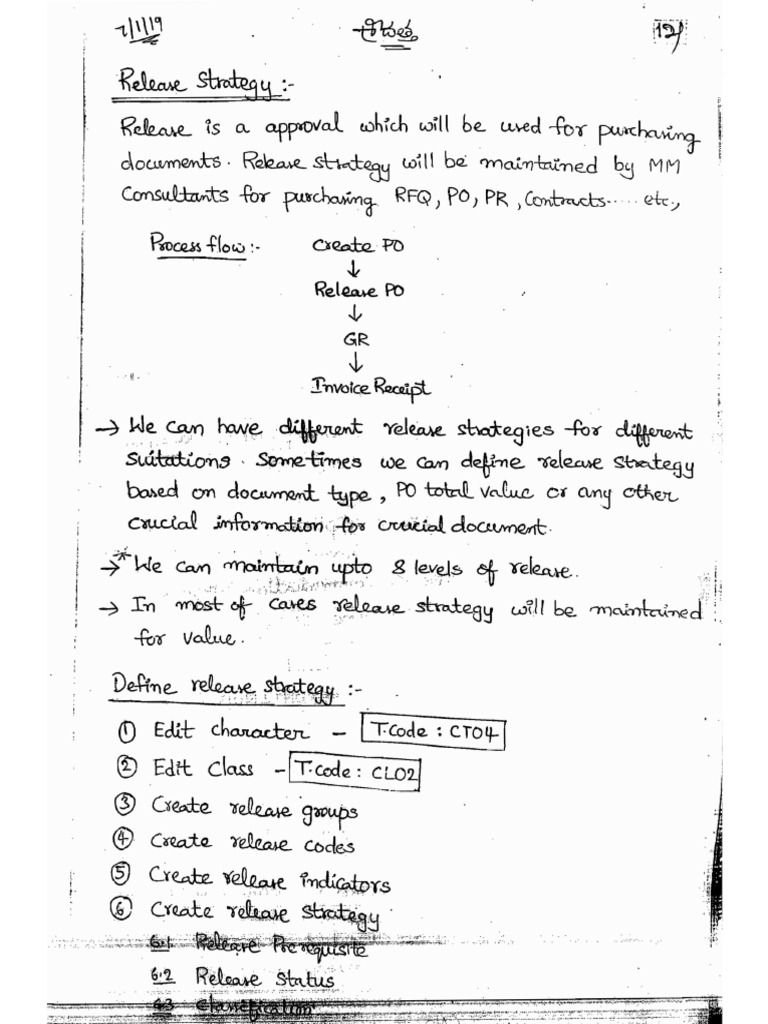 7/1/19
12)
Release Strategy :-
Release is a approval which will be used for purchasing
documents. Release strategy will be maintained by MM
Consultants for purchasing RFQ, PO, PR, Contracts..... etc.,
Process flow :- Create PO
↓
Release PO
↓
GR
↓
Invoice Receipt
→ We can have different release strategies for different
suitations. Sometimes we can define release strategy
based on document type, PO total value or any other
crucial information for crucial document.
→ * We can maintain upto 8 levels of release.
→ In most of cases release strategy will be maintained
for value.
Define release strategy :-
① Edit character - T.code : CT04
② Edit Class - T.code : CL02
③ Create release groups
④ Create release codes
⑤ Create release indicators
⑥ Create release strategy
6.1 Release Prerequisite
6.2 Release Status
6.3 Classification